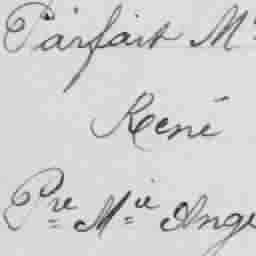 Parfait M
René
Pre Mie Ange